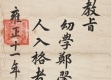 教旨
幼學鄭堅
人入格者
雍正十年